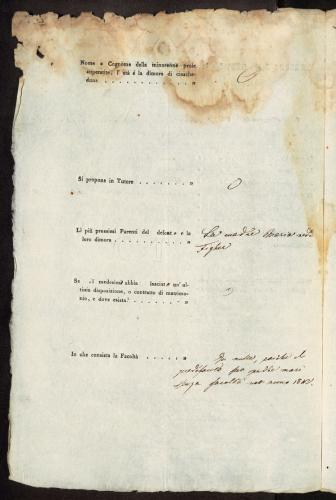 Nome e Cognome della minorenne prole
superstite, l' età è la dimora di ciasche-
duno . . . . . . . . . . . . . »
Si propone in Tutore . . . . . . . . »
Li più prossimi Parenti del defont e la
loro dimora . . . . . . . . . . »
La madre Maria
Figlia
Se il medesimo abbia lasciat un' ul-
tima disposizione, o contratto di matrimo-
nio, e dove esista? . . . . . . . »
In che consista la Facoltà . . . . . . »
In nulla, poichè il
predefonto fu padre morì
senza facoltà nel anno 1842.